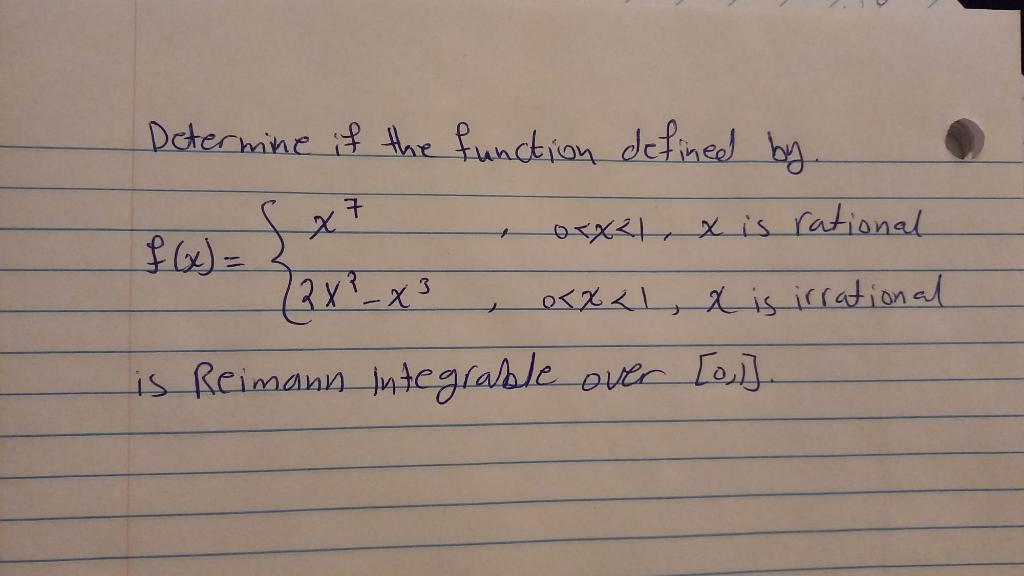 Determine if the function defined by.
f(x) = { x⁷ , 0<x<1, x is rational
2x² - x³ , 0<x<1, x is irrational
is Reimann Integrable over [0,1].